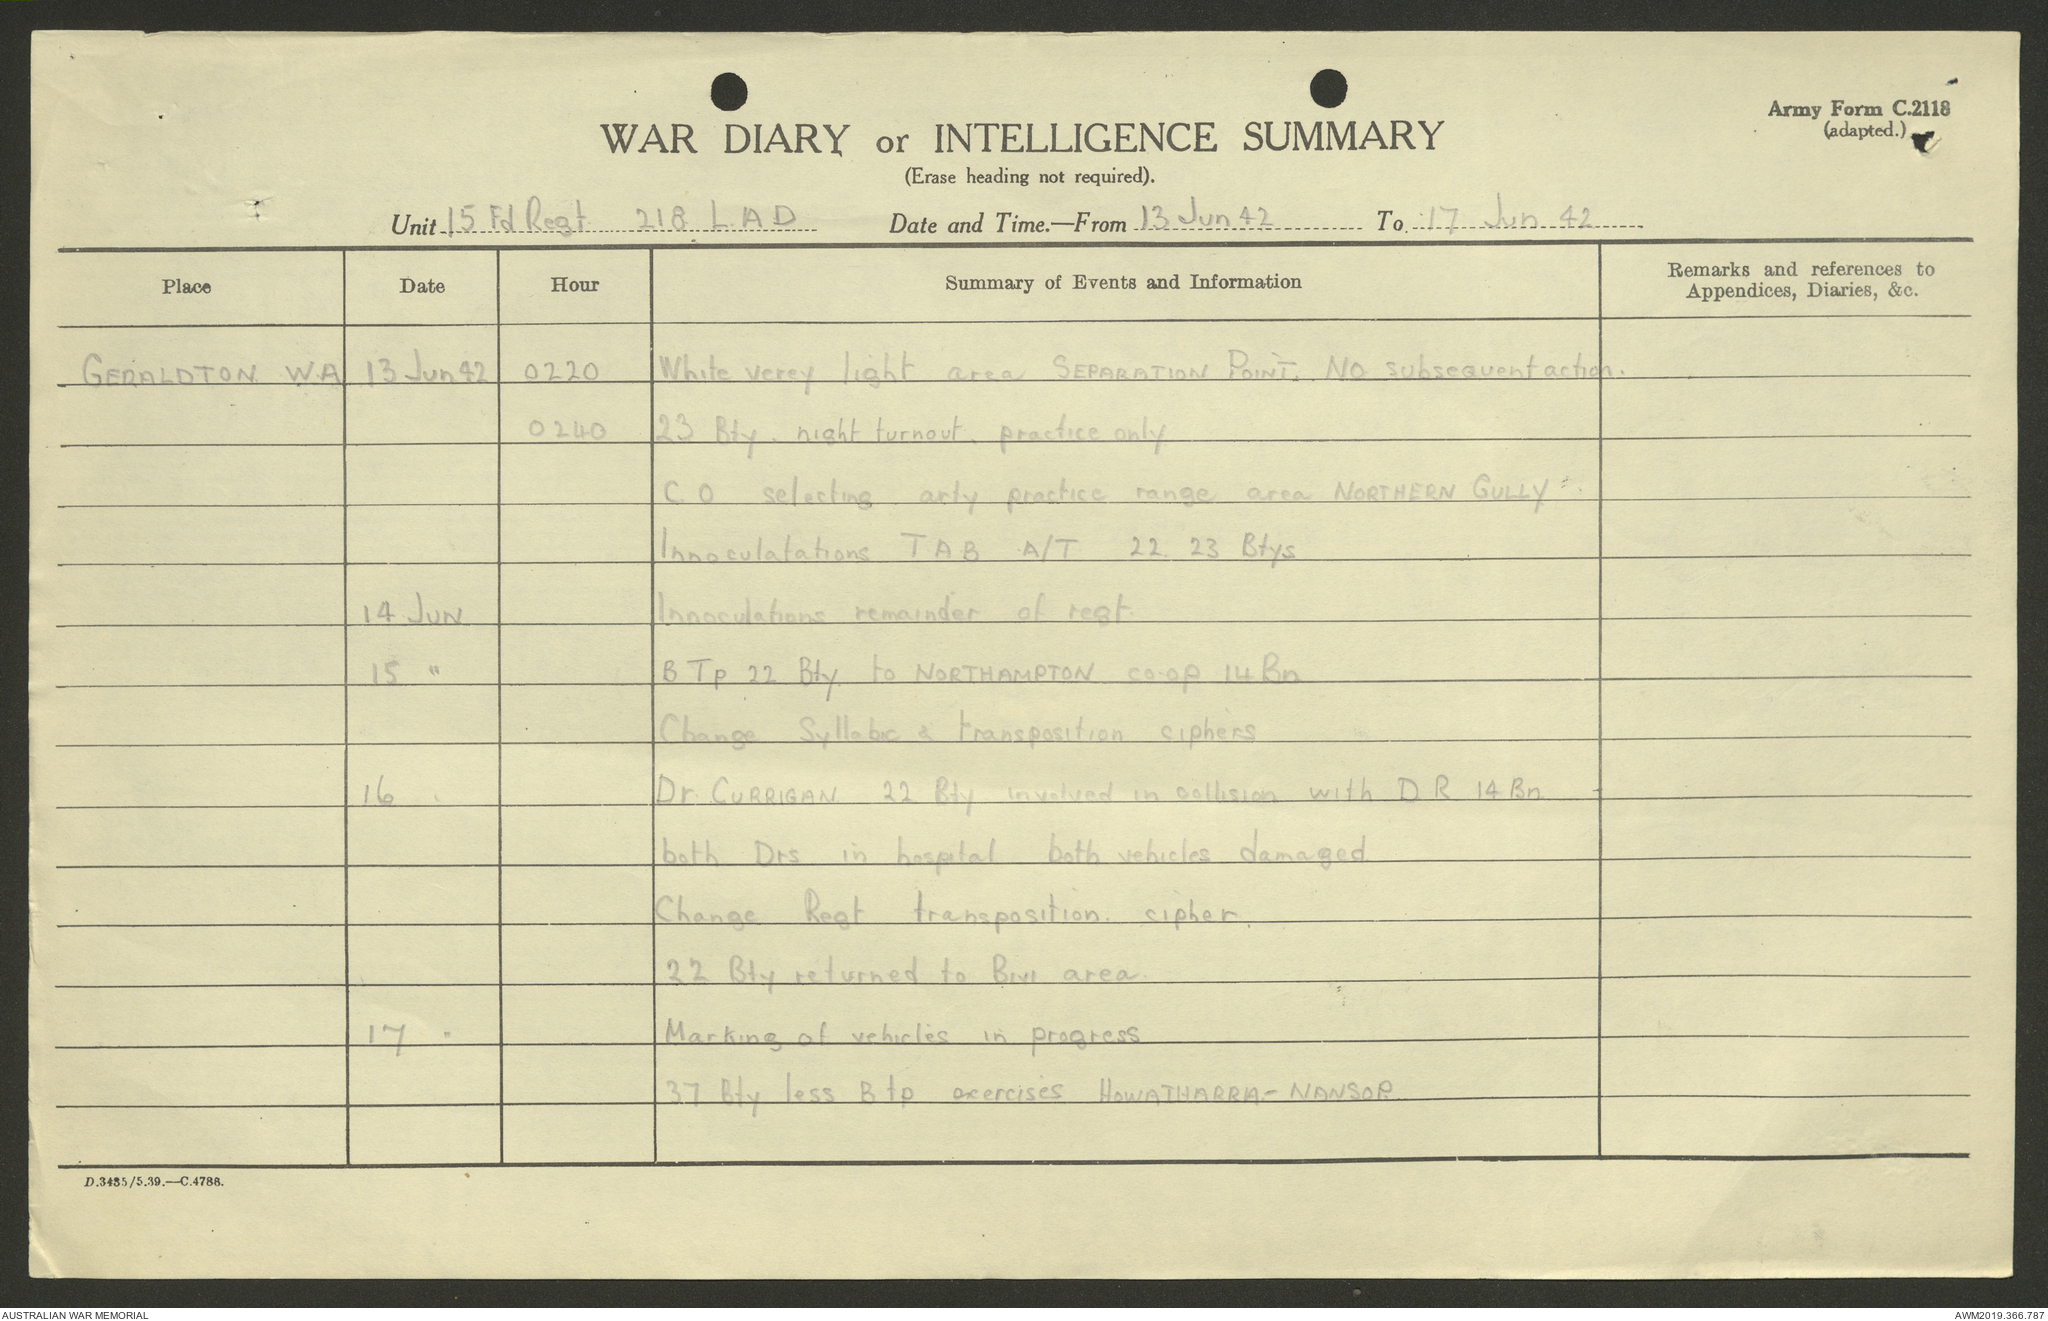 Army Form C.2118
(adapted.)
WAR DIARY or INTELLIGENCE SUMMARY
(Erase heading not required).
Unit 15 Fd Regt 218 L.A.D Date and Time.—From 13 Jun 42 To 17 Jun 42
Place Date Hour Summary of Events and Information Remarks and references to
Appendices, Diaries, &c.
GERALDTON W.A 13 Jun 42 0220 White verey light area SEPARATION POINT. NO subsequent action.
0240 23 Bty. night turnout, practice only
C O selecting arty practice range area NORTHERN GULLY
Innoculatations TAB A/T 22 23 Btys
14 JUN Innoculations remainder of regt.
15 " B Tp 22 Bty to NORTHAMPTON co-op 14 Bn
Change Syllabic & transposition ciphers
16 " Dr. CURRIGAN 22 Bty involved in collision with D R 14 Bn
both Drs in hospital both vehicles damaged
Change Regt transposition cipher.
22 Bty returned to Bivi area.
17 " Marking of vehicles in progress
37 Bty less B tp exercises HOWATHARRA-NANSOR
D.3485/5.39.—C.4788.
AUSTRALIAN WAR MEMORIAL AWM2019.366.787